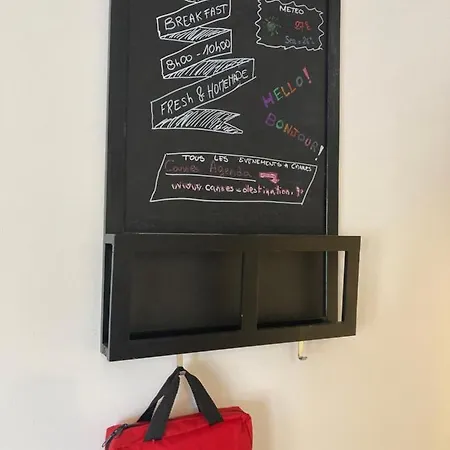 BREAKFAST
8h00 - 10h00
FRESH & HOMEMADE
METEO
27°C
Sea = 25°C
HELLO!
BONJOUR!
TOUS LES EVENEMENTS A CANNES
Cannes Agenda
www.cannes-destination.fr